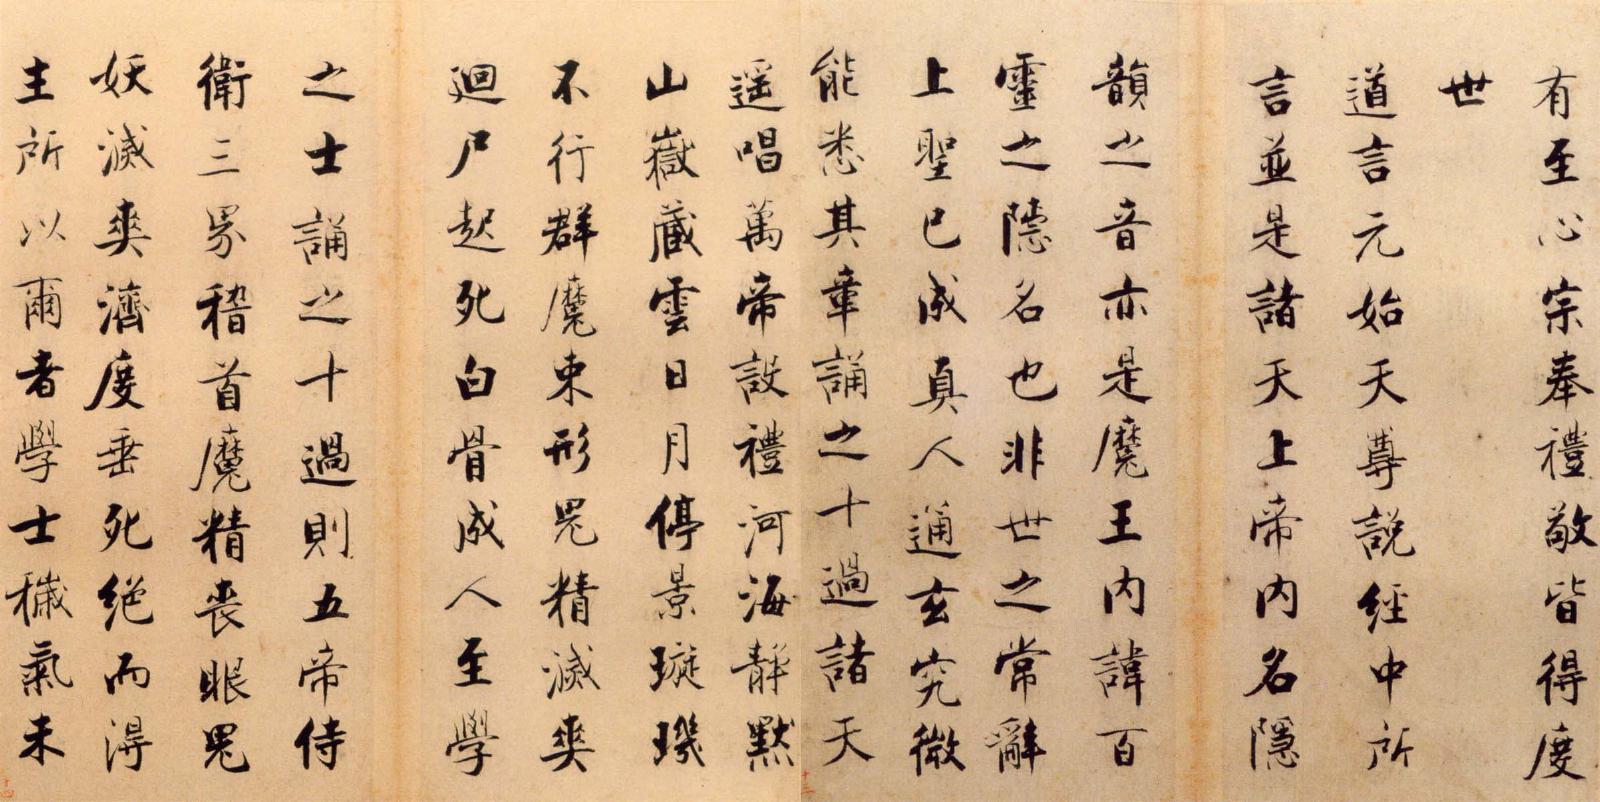 有至心宗奉禮敬皆得度
世
道言元始天尊說經中所
言並是諸天上帝内名隱
韻之音亦是魔王内諱百
靈之隱名也非世之常辭
上聖已成真人通玄究微
能悉其章誦之十過諸天
遥唱萬帝設禮河海靜默
山嶽藏雲日月停景璇璣
不行群魔束形鬼精滅爽
迴尸起死白骨成人至學
之士誦之十過則五帝侍
衛三界稽首魔精喪眼鬼
妖滅爽濟度垂死絕而得
生所以爾者學士穢氣未
十三
十四